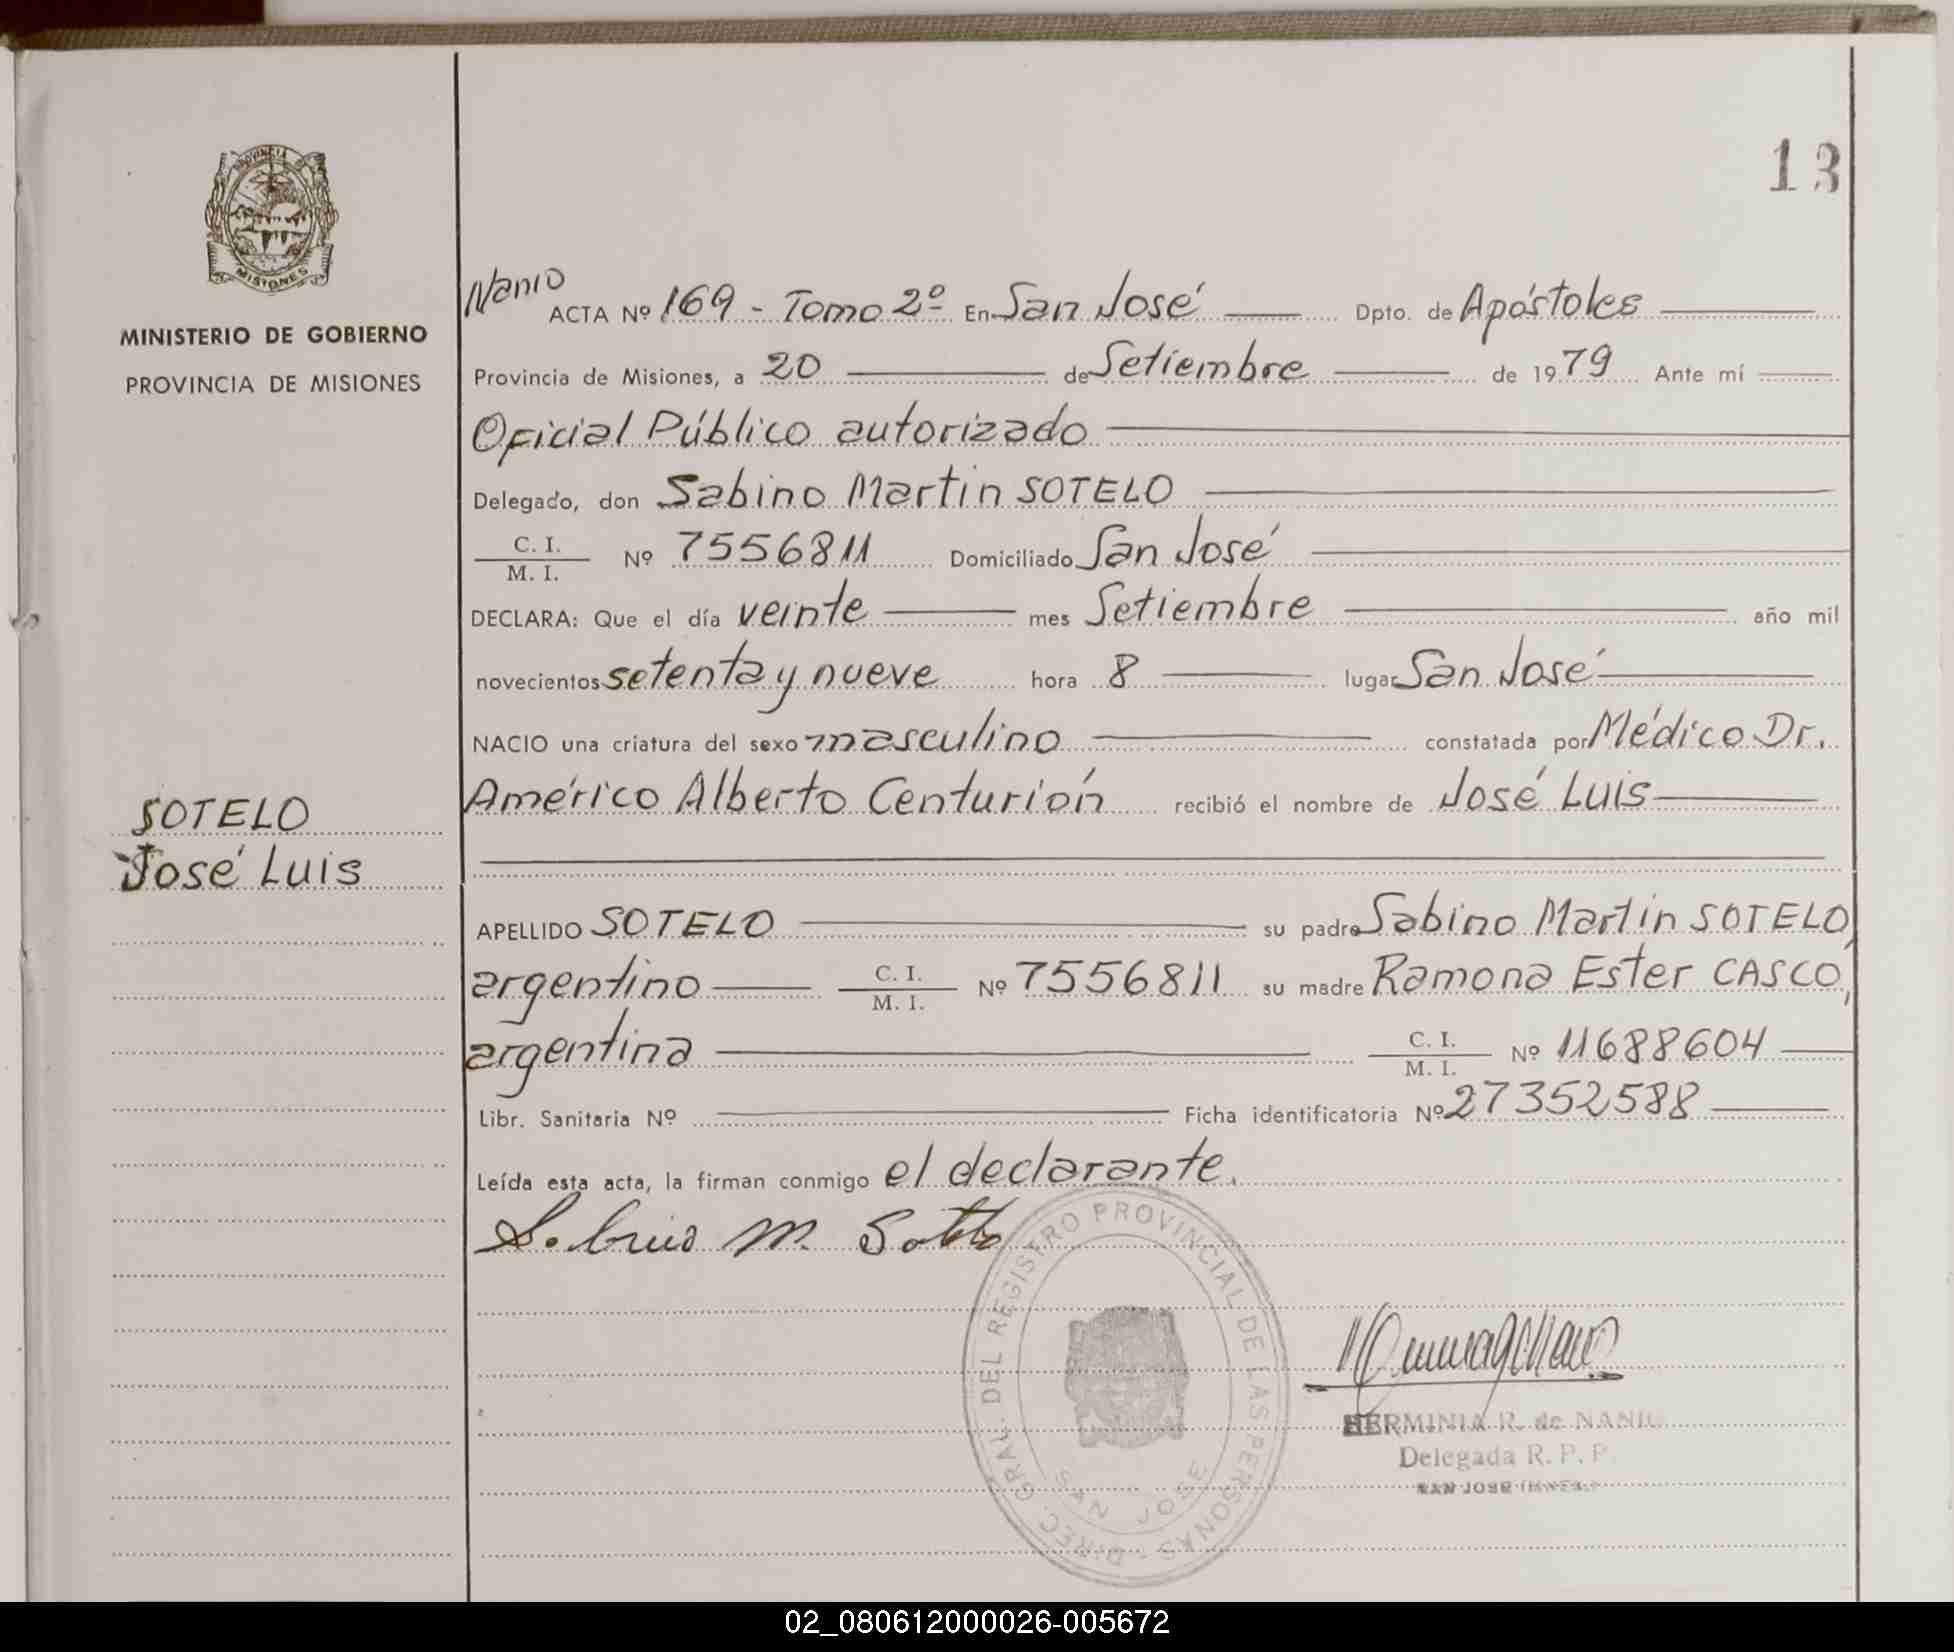 13
PROVINCIA D
MISIONES
MINISTERIO DE GOBIERNO
PROVINCIA DE MISIONES
SOTELO
José Luis
Nanio
ACTA Nº 169 - Tomo 2º En San José Dpto. de Apóstoles
Provincia de Misiones, a 20 de Setiembre de 1979 Ante mí
Oficial Público autorizado
Delegado, don Sabino Martin SOTELO
C. I.
M. I. Nº 7556811 Domiciliado San José
DECLARA: Que el día veinte mes Setiembre año mil
novecientos setenta y nueve hora 8 lugar San José
NACIO una criatura del sexo masculino constatada por Médico Dr.
Américo Alberto Centurión recibió el nombre de José Luis
APELLIDO SOTELO su padre Sabino Martin SOTELO,
argentino C. I. M. I. Nº 7556811 su madre Ramona Ester CASCO,
argentina C. I. M. I. Nº 11688604
Libr. Sanitaria Nº Ficha identificatoria Nº 27352588
Leída esta acta, la firman conmigo el declarante.
DIREC. GRAL. DEL REGISTRO PROVINCIAL DE LAS PERSONAS -
SAN JOSE
HERMINIA R. de NANIO
Delegada R. P. P.
SAN JOSE
02_080612000026-005672